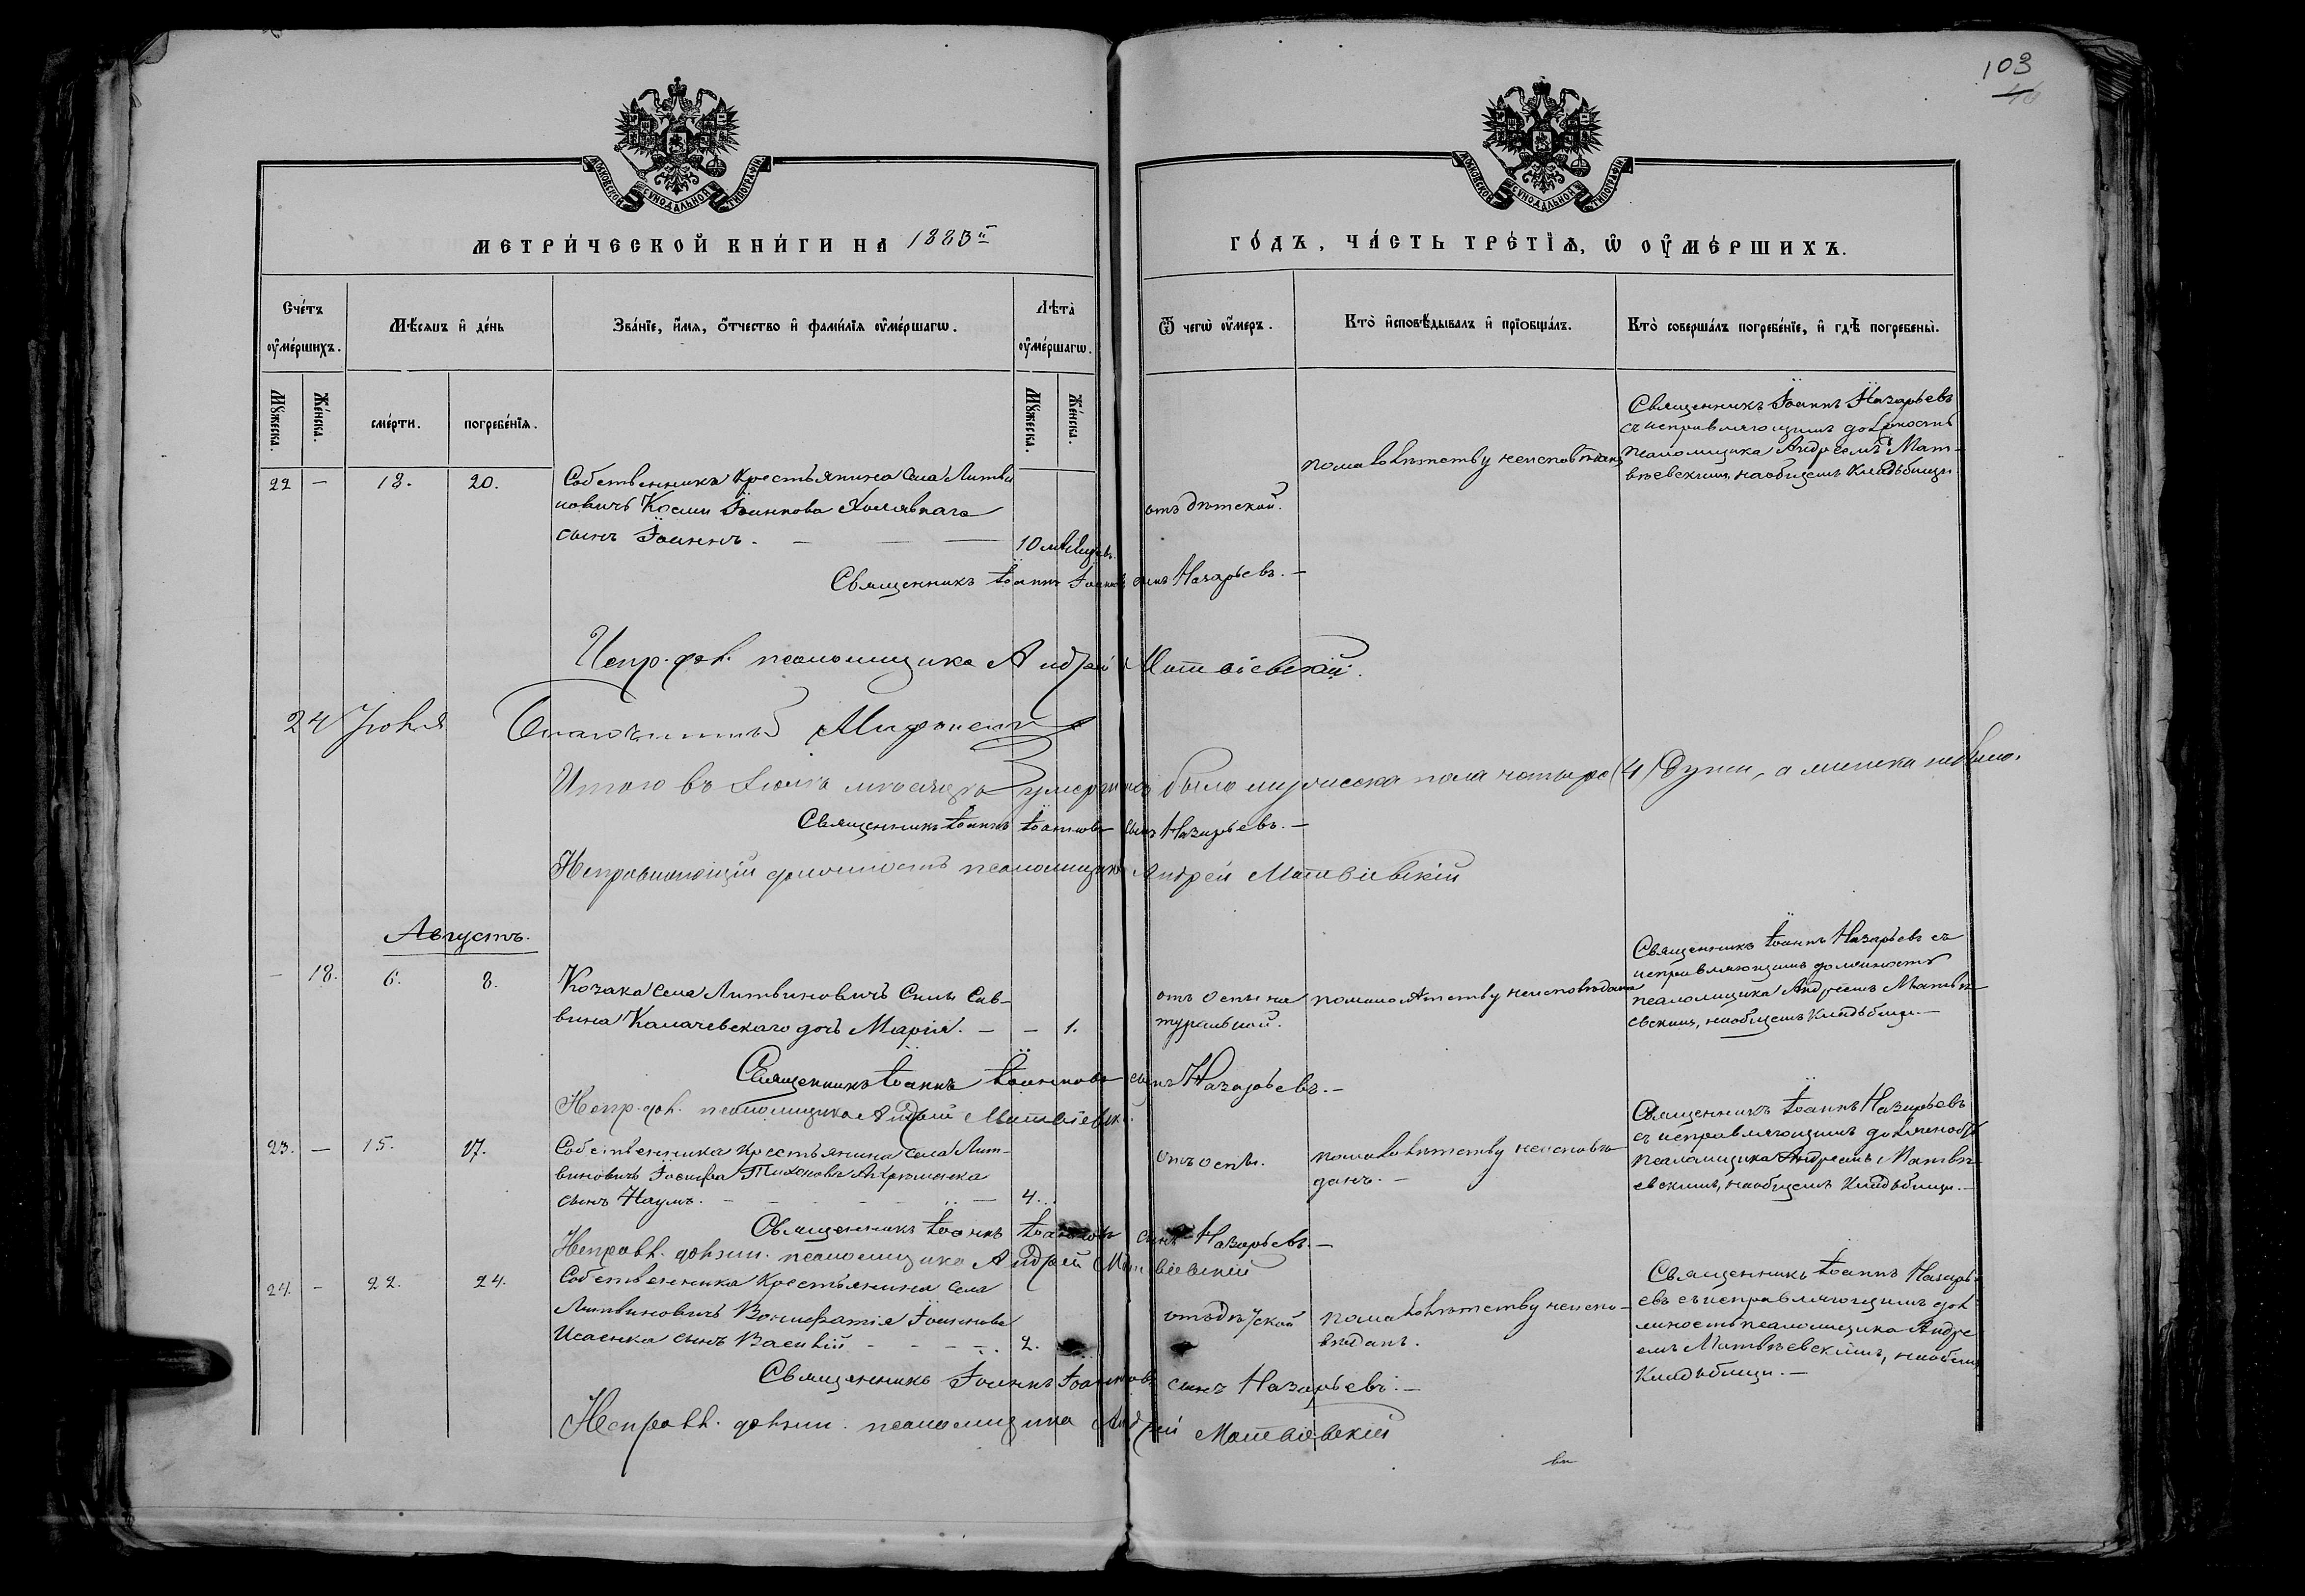 103
46
МОСКОВСКОЙ СѴНОДАЛЬНОЙ ТИПОГРАФІИ
МОСКОВСКОЙ СѴНОДАЛЬНОЙ ТИПОГРАФІИ
МЕТРИ́ЧЕСКОЙ КНИ́ГИ НА 1883й
ГО́ДЪ, ЧА́СТЬ ТРЕ́ТІѦ, Ѿ ОУ҆МЕ́РШИХЪ.
Сче́тъ оу҆ме́ршихъ.
Мѣ́сяцъ и҆ де́нь
Зва́нїе, и҆́мя, ѻ҆́тчество и҆ фами́лїя оу҆ме́ршагѡ.
Лѣ́та оу҆ме́ршагѡ.
Ѿ чегѡ̀ оу҆́меръ.
Кто̀ и҆сповѣ́дывалъ и҆ прїобща́лъ.
Кто̀ соверша́лъ погребе́нїе, и҆ гдѣ̀ погребены̀.
Мꙋ́жеска.
Же́нска.
сме́рти.
погребе́нїя.
Мꙋ́жеска.
Же́нска.
22 — 18. 20.
Собственника крестьянина села Литви
новичъ Космы Іоаннова
сынъ Іоаннъ. — — —
10 мѣсяцевъ.
отъ дѣтской.
по малолѣтству неисповѣданъ
Священникъ Іоаннъ Назарьевъ
съ исправляющимъ должность
псаломщика Андреемъ Мат-
вѣевскимъ, на общемъ кладбищи
Священникъ Іоаннъ Іоанновъ сынъ Назарьевъ. —
Испр. дол. псаломщика Андрей Матвіевскій.
24 Іюля Благочинный
Итого въ Іюлѣ мѣсяцѣ умершихъ было мужеска пола четыре (4) души, а женска не было.
Священникъ Іоаннъ Іоанновъ сынъ Назарьевъ. —
Исправляющій должность псаломщика Андрей Матвіевскій
Августъ.
— 18. 6. 8.
Козака села Литвиновичъ Силы Сав-
вина Калачевскаго дочь Марія. — — 1.
отъ оспы на
туральной.
по малолѣтству неисповѣдана
Священникъ Іоаннъ Назарьевъ съ
исправляющимъ должность
псаломщика Андреемъ Матвѣ-
евскимъ, на общемъ кладбищи. —
Священникъ Іоаннъ Іоанновъ сынъ Назарьевъ. —
Испр. дол. псаломщика Андрей Матвіевск.
23. — 15. 17.
Собственника крестьянина села Лит-
виновичъ Іосифа Тихонова
сынъ Наумъ. — — — 4.
отъ оспы.
по малолѣтству неисповѣ-
данъ. —
Священникъ Іоаннъ Назарьевъ
съ исправляющимъ должность
псаломщика Андреемъ Матвѣ-
евскимъ, на общемъ кладбищи. —
Священникъ Іоаннъ Іоанновъ сынъ Назарьевъ. —
Исправл. должн. псаломщика Андрей Матвіевскій
24. — 22. 24.
Собственника крестьянина села
Литвиновичъ Вонифатія Іоаннова
Исаенка сынъ Василій — — — 2.
отъ дѣтской
по малолѣтству неиспо-
вѣданъ.
Священникъ Іоаннъ Назарь-
евъ съ исправляющимъ дол
жность псаломщика Андре
емъ Матвѣевскимъ, на общемъ
кладбищи. —
Священникъ Іоаннъ Іоанновъ сынъ Назарьевъ. —
Исправл. должн. псаломщика Андрей Матвіевскій